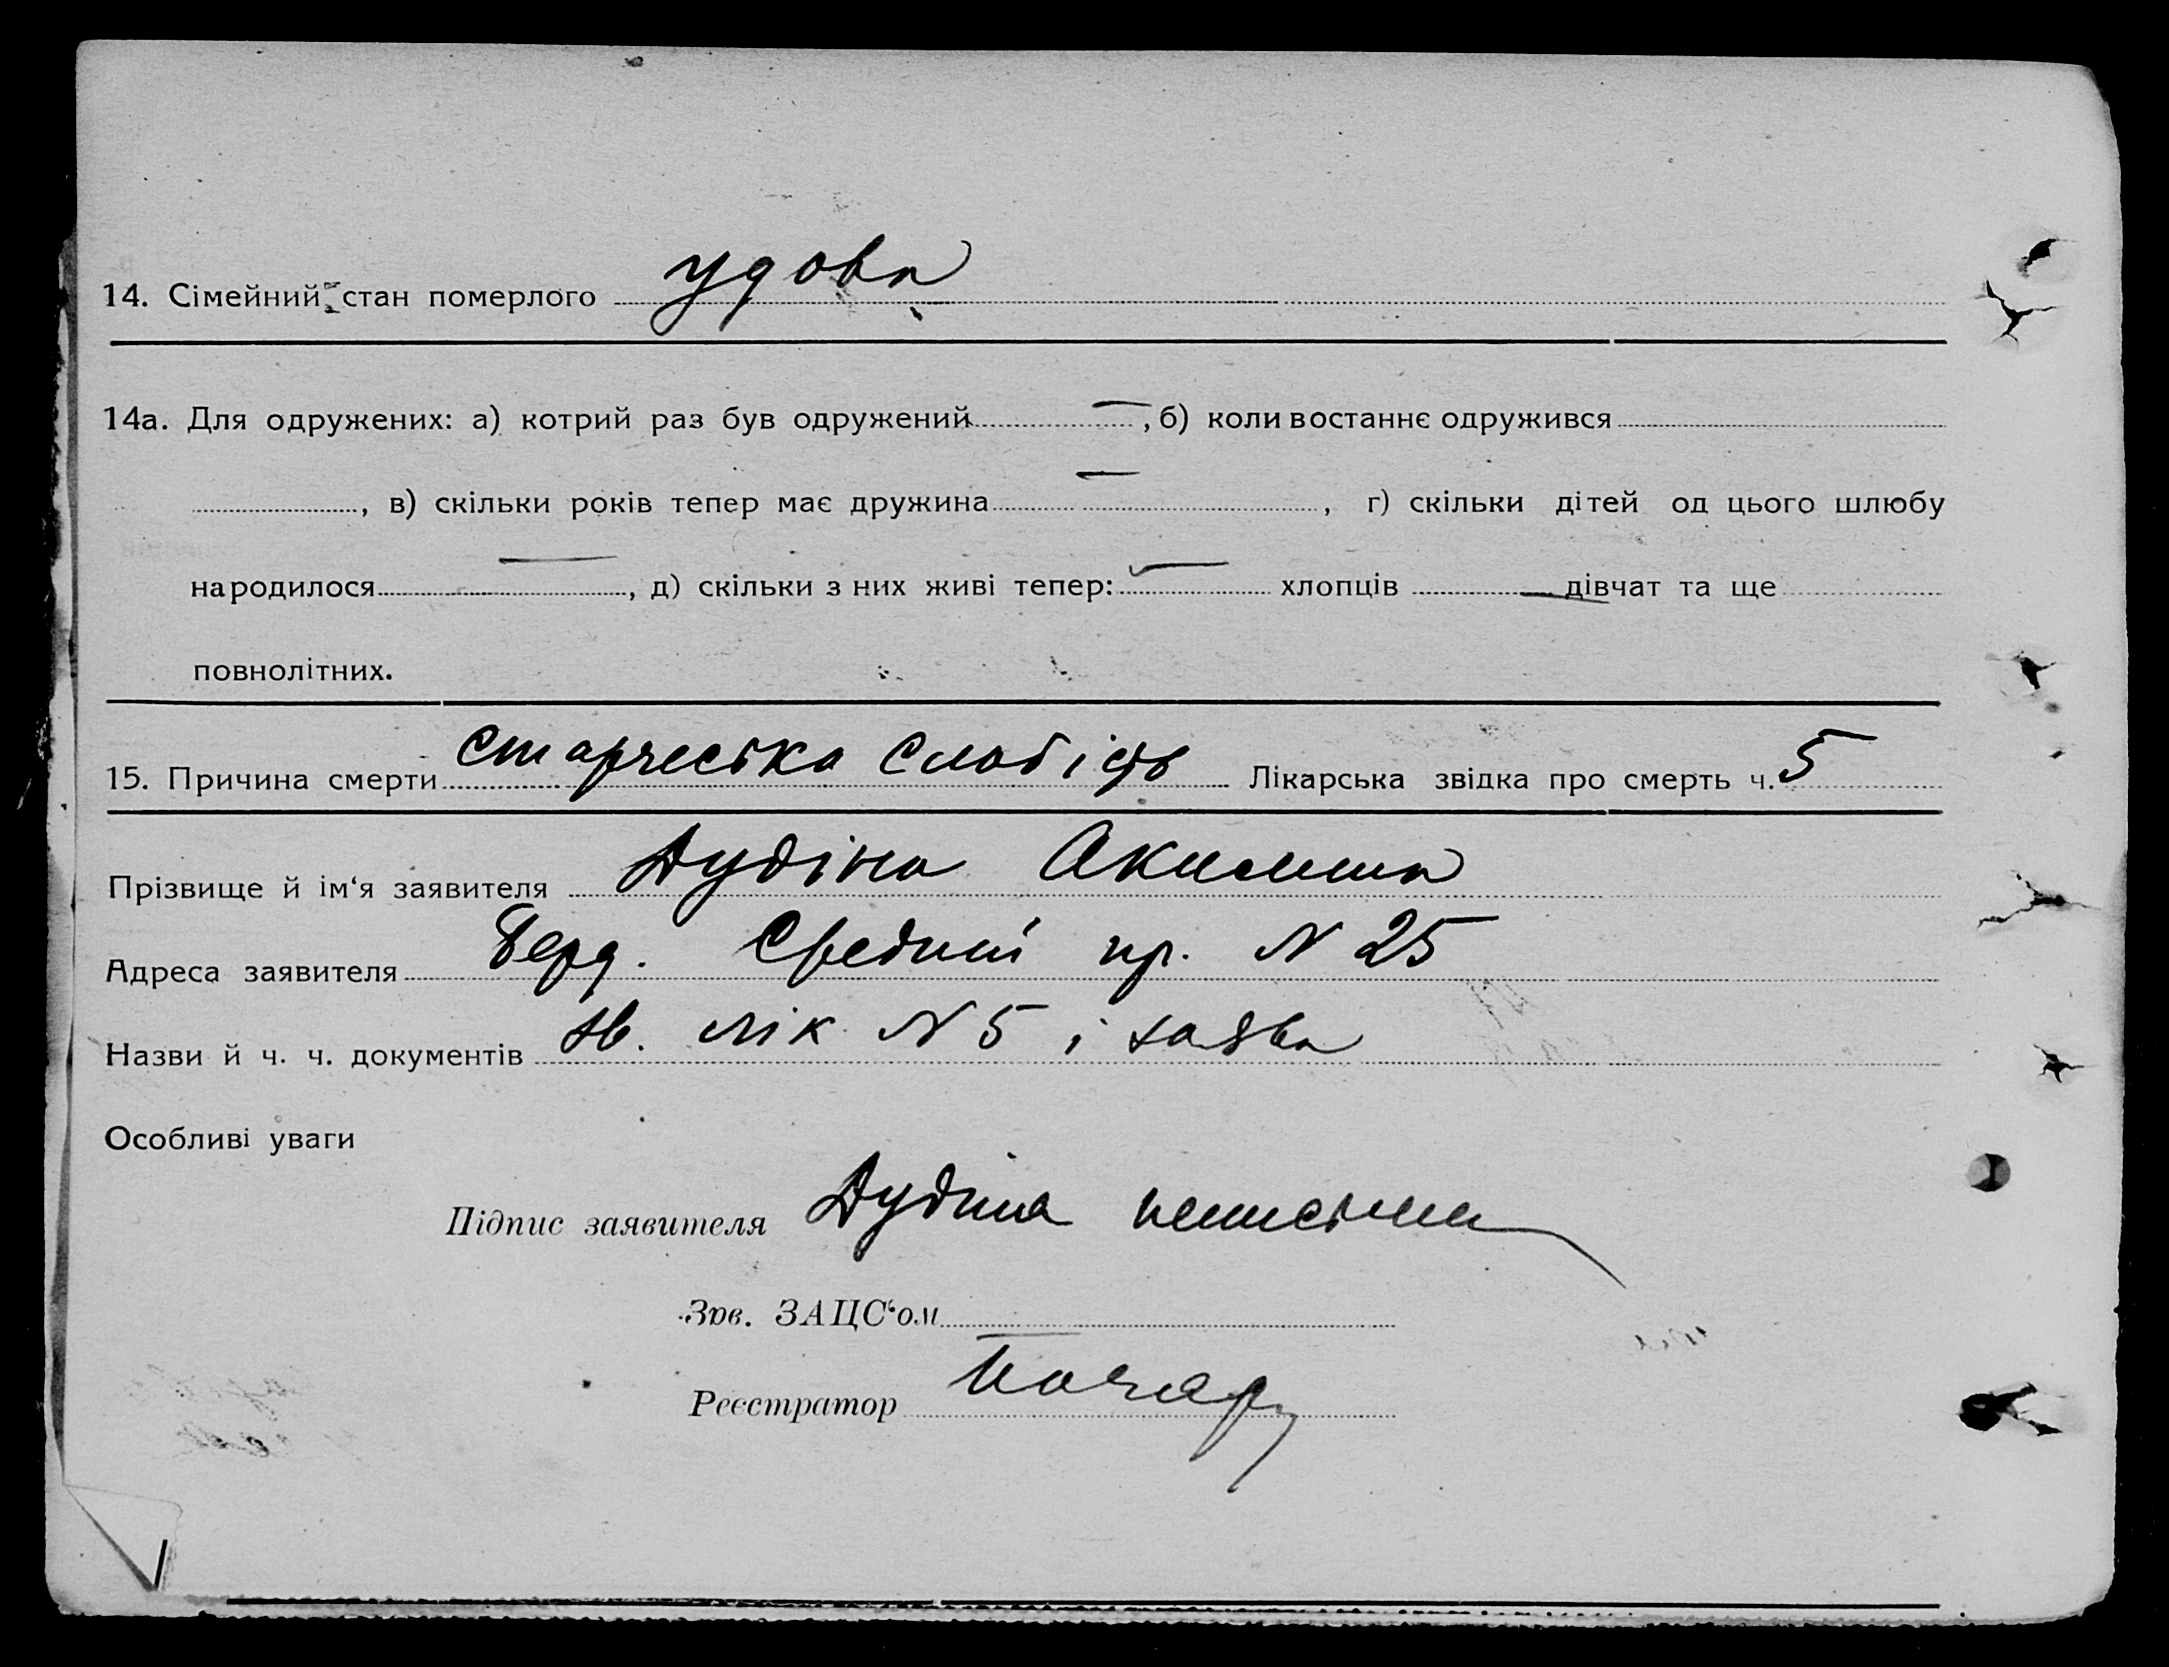 14. Сімейний стан померлого удова
14а. Для одружених: а) котрий раз був одружений —, б) коли востаннє одружився
, в) скільки років тепер має дружина —, г) скільки дітей од цього шлюбу
народилося —, д) скільки з них живі тепер: — хлопців — дівчат та ще
повнолітних.
15. Причина смерти старческа слабість Лікарська звідка про смерть ч. 5
Прізвище й ім‘я заявителя Дудіна
Адреса заявителя Берд. Средній пр. N 25
Назви й ч. ч. документів зв. лік N 5 і заява
Особливі уваги
Підпис заявителя Дудіна неписьмен
Зав. ЗАЦС‘ом
Реєстратор